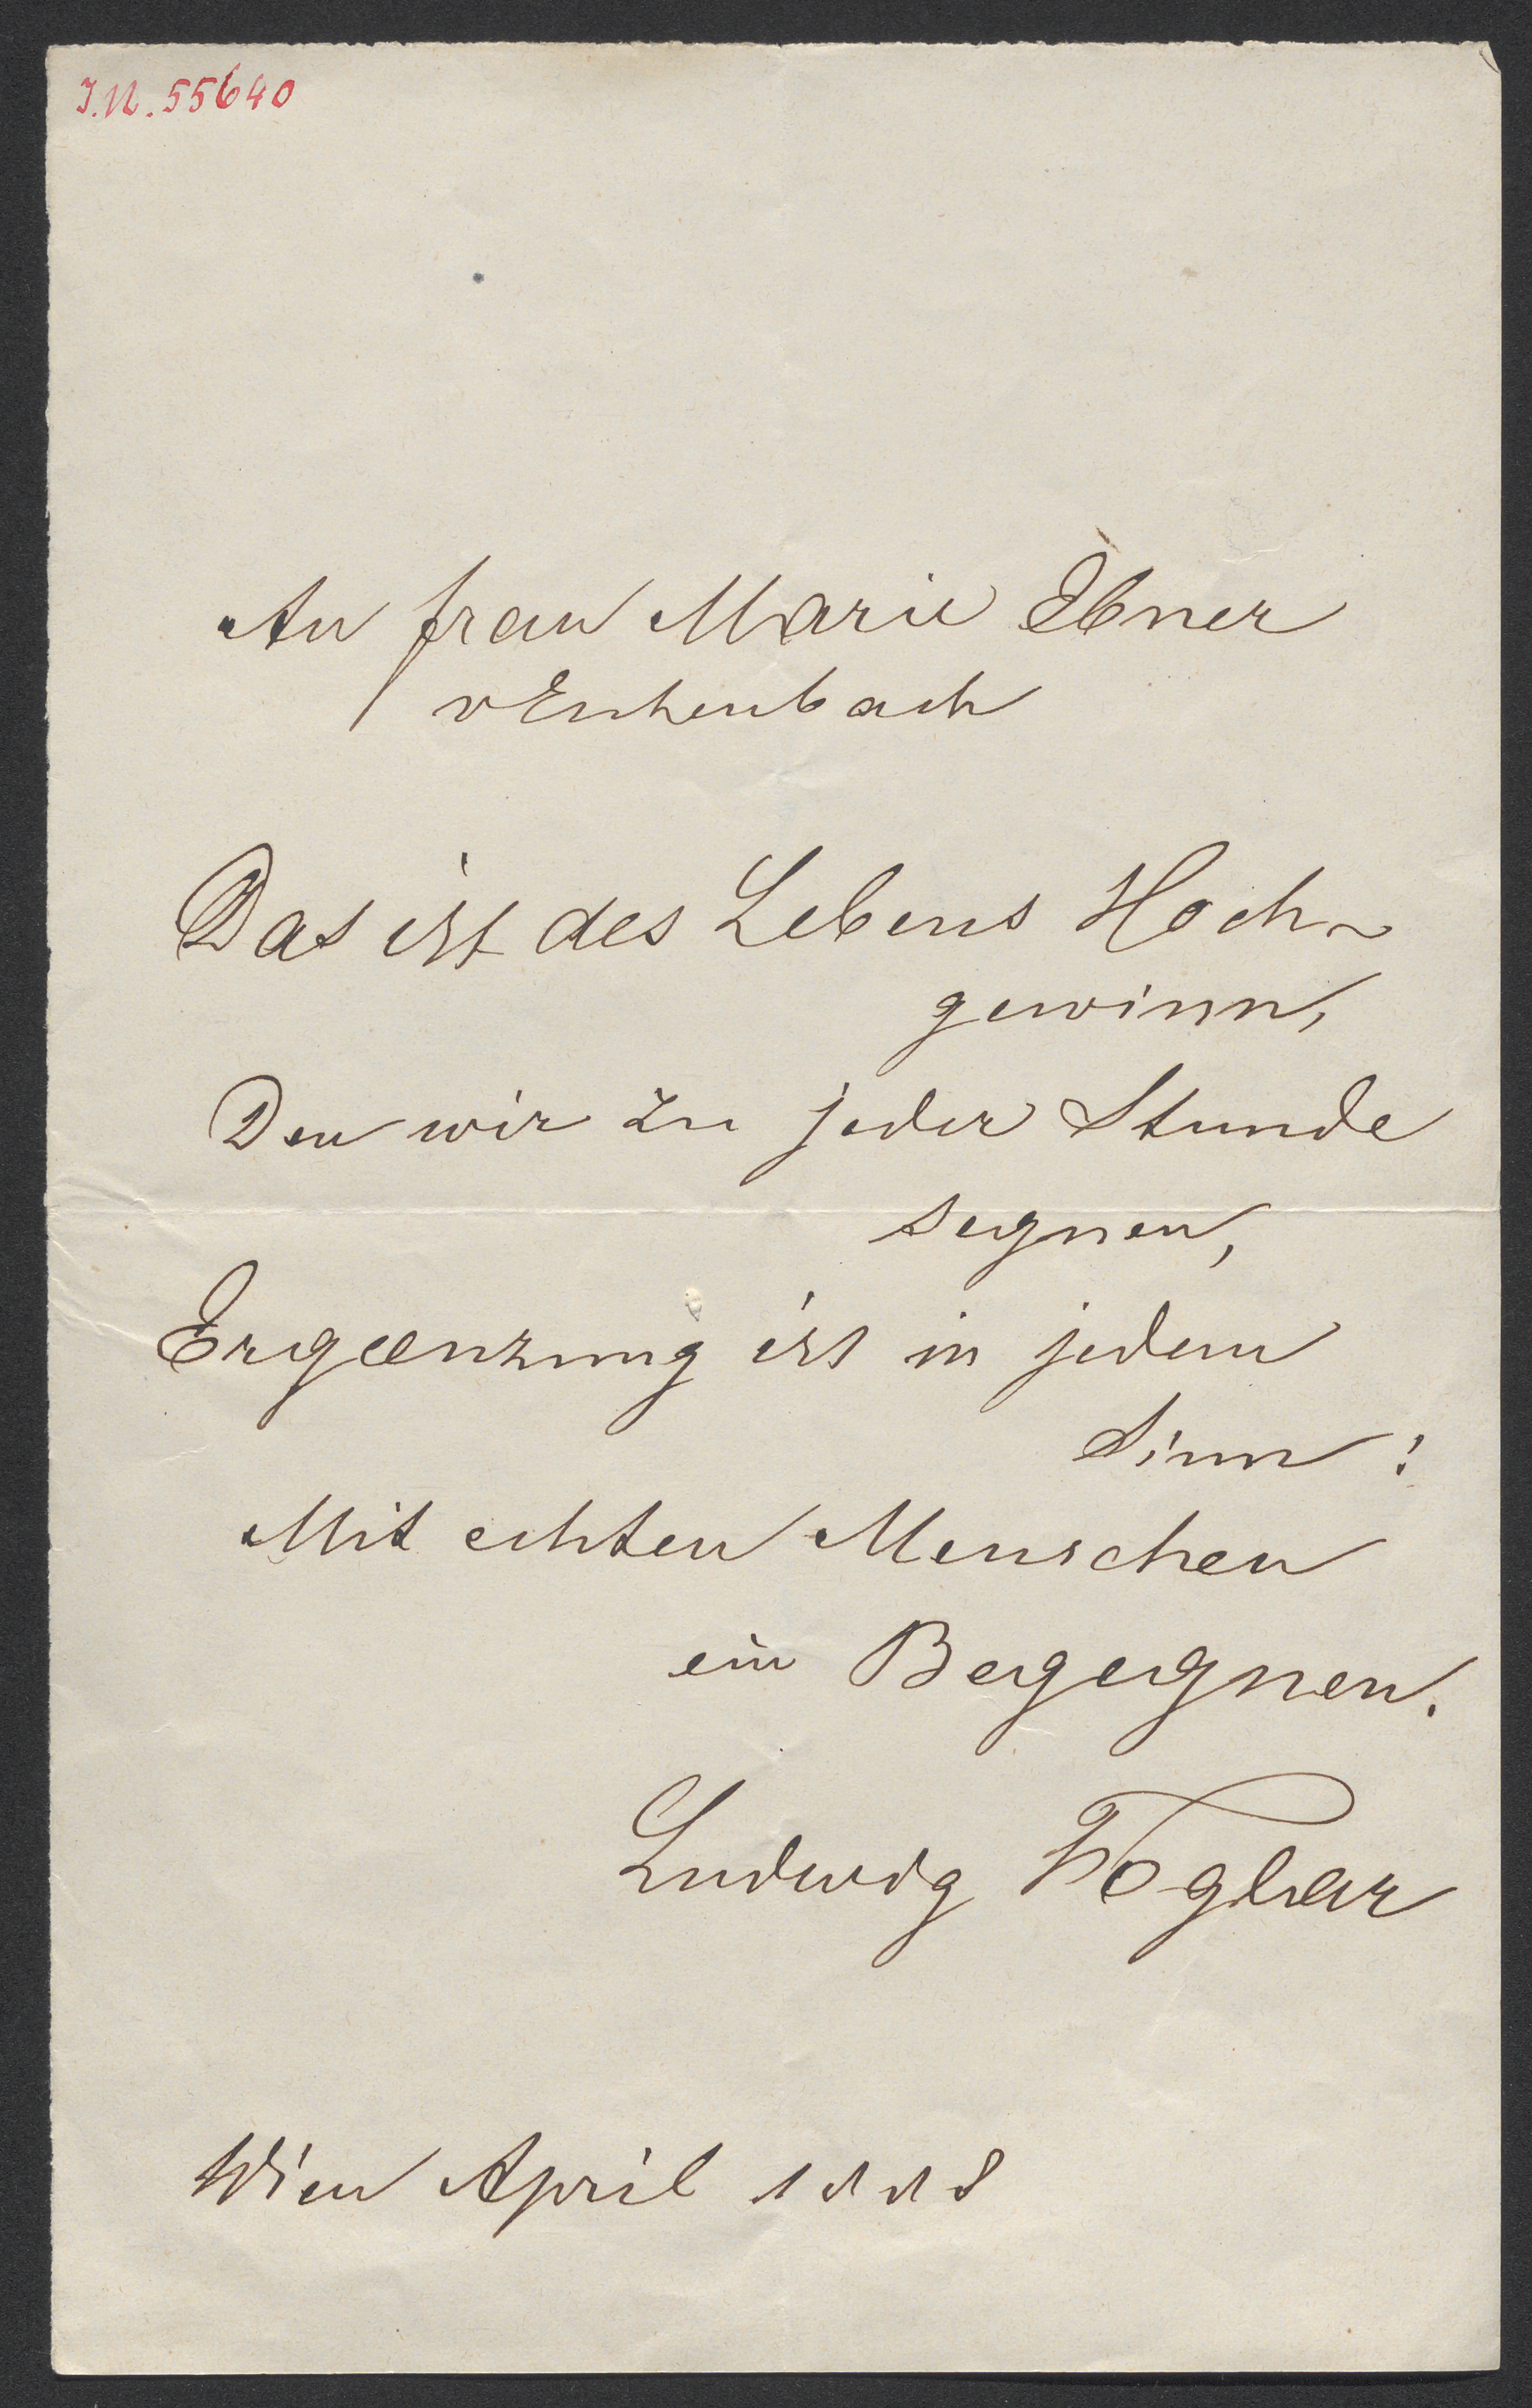 I.N. 55640
An Frau Marie Ebner
v Eschenbach
Das ist des Lebens Hoch-
gewinn,
Den wir zu jeder Stunde
segnen,
Ergaenzung ist in jedem
Sinn:
Mit echten Menschen
ein Begegnen.
Ludwig Foglar
Wien April 1888